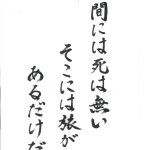 間には死は無い
そこには旅が
あるだけだ